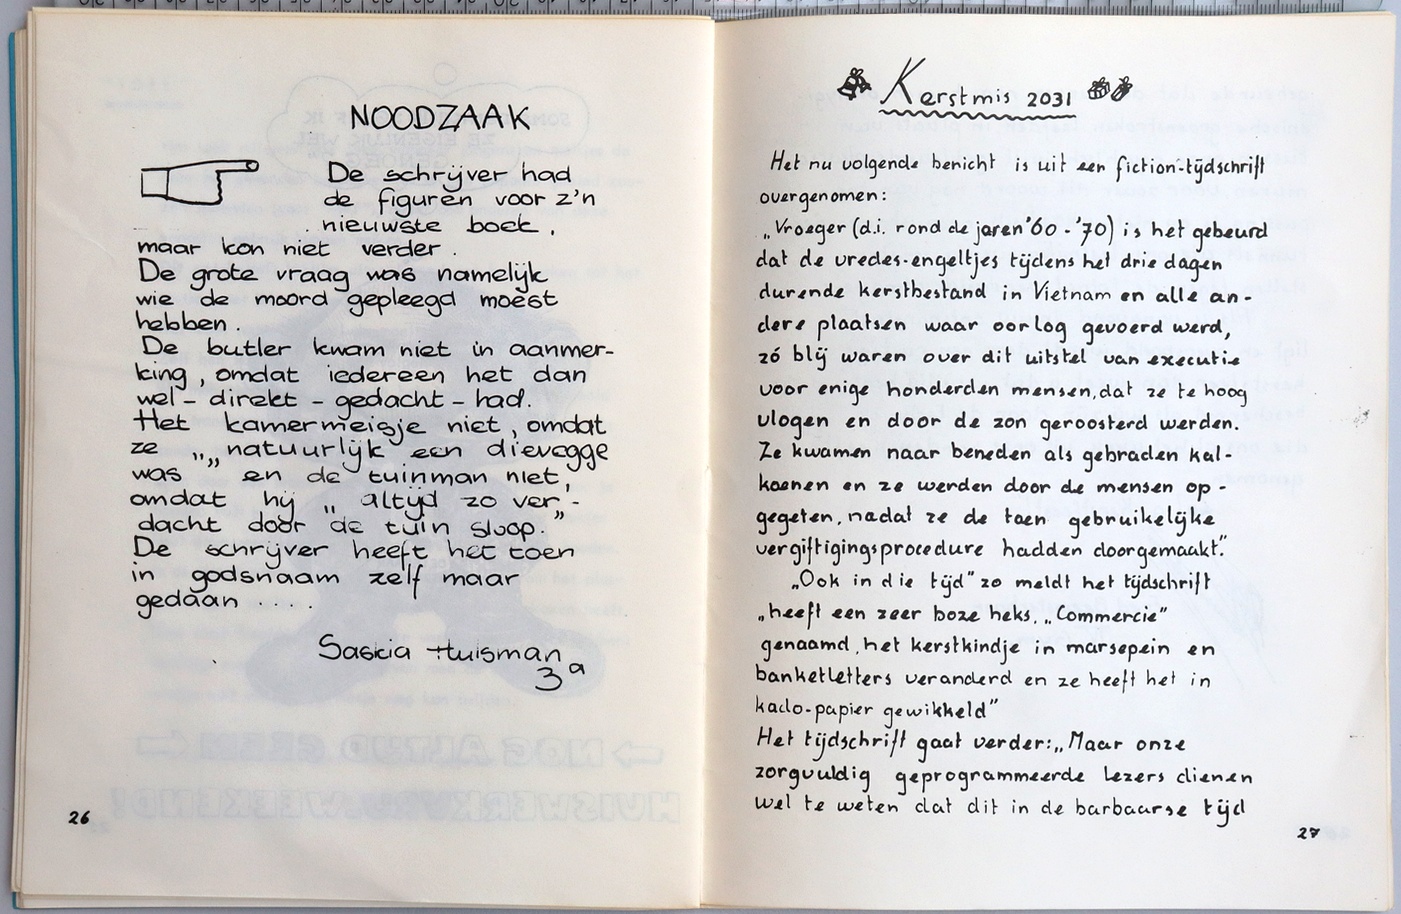 NOODZAAK
De schrijver had
de figuren voor z'n
nieuwste boek,
maar kon niet verder.
De grote vraag was namelijk
wie de moord gepleegd moest
hebben.
De butler kwam niet in aanmer-
king, omdat iedereen het dan
wel - direkt - gedacht - had.
Het kamermeisje niet, omdat
ze „„ natuurlijk een dievegge
was en de tuinman niet,
omdat hij „ altijd zo ver„-
dacht door de tuin sloop."
De schrijver heeft het toen
in godsnaam zelf maar
gedaan ....
Saskia Huisman
3a
26
Kerstmis 2031
Het nu volgende bericht is uit een fiction-tijdschrift
overgenomen:
„Vroeger (d.i. rond de jaren '60 - '70) is het gebeurd
dat de vredes-engeltjes tijdens het drie dagen
durende kerstbestand in Vietnam en alle an-
dere plaatsen waar oorlog gevoerd werd,
zó blij waren over dit uitstel van executie
voor enige honderden mensen, dat ze te hoog
vlogen en door de zon geroosterd werden.
Ze kwamen naar beneden als gebraden kal-
koenen en ze werden door de mensen op-
gegeten, nadat ze de toen gebruikelijke
vergiftigingsprocedure hadden doorgemaakt."
„Ook in die tijd" zo meldt het tijdschrift
„heeft een zeer boze heks, „Commercie"
genaamd, het kerstkindje in marsepein en
banketletters veranderd en ze heeft het in
kado-papier gewikkeld"
Het tijdschrift gaat verder: „Maar onze
zorgvuldig geprogrammeerde lezers dienen
wel te weten dat dit in de barbaarse tijd
27